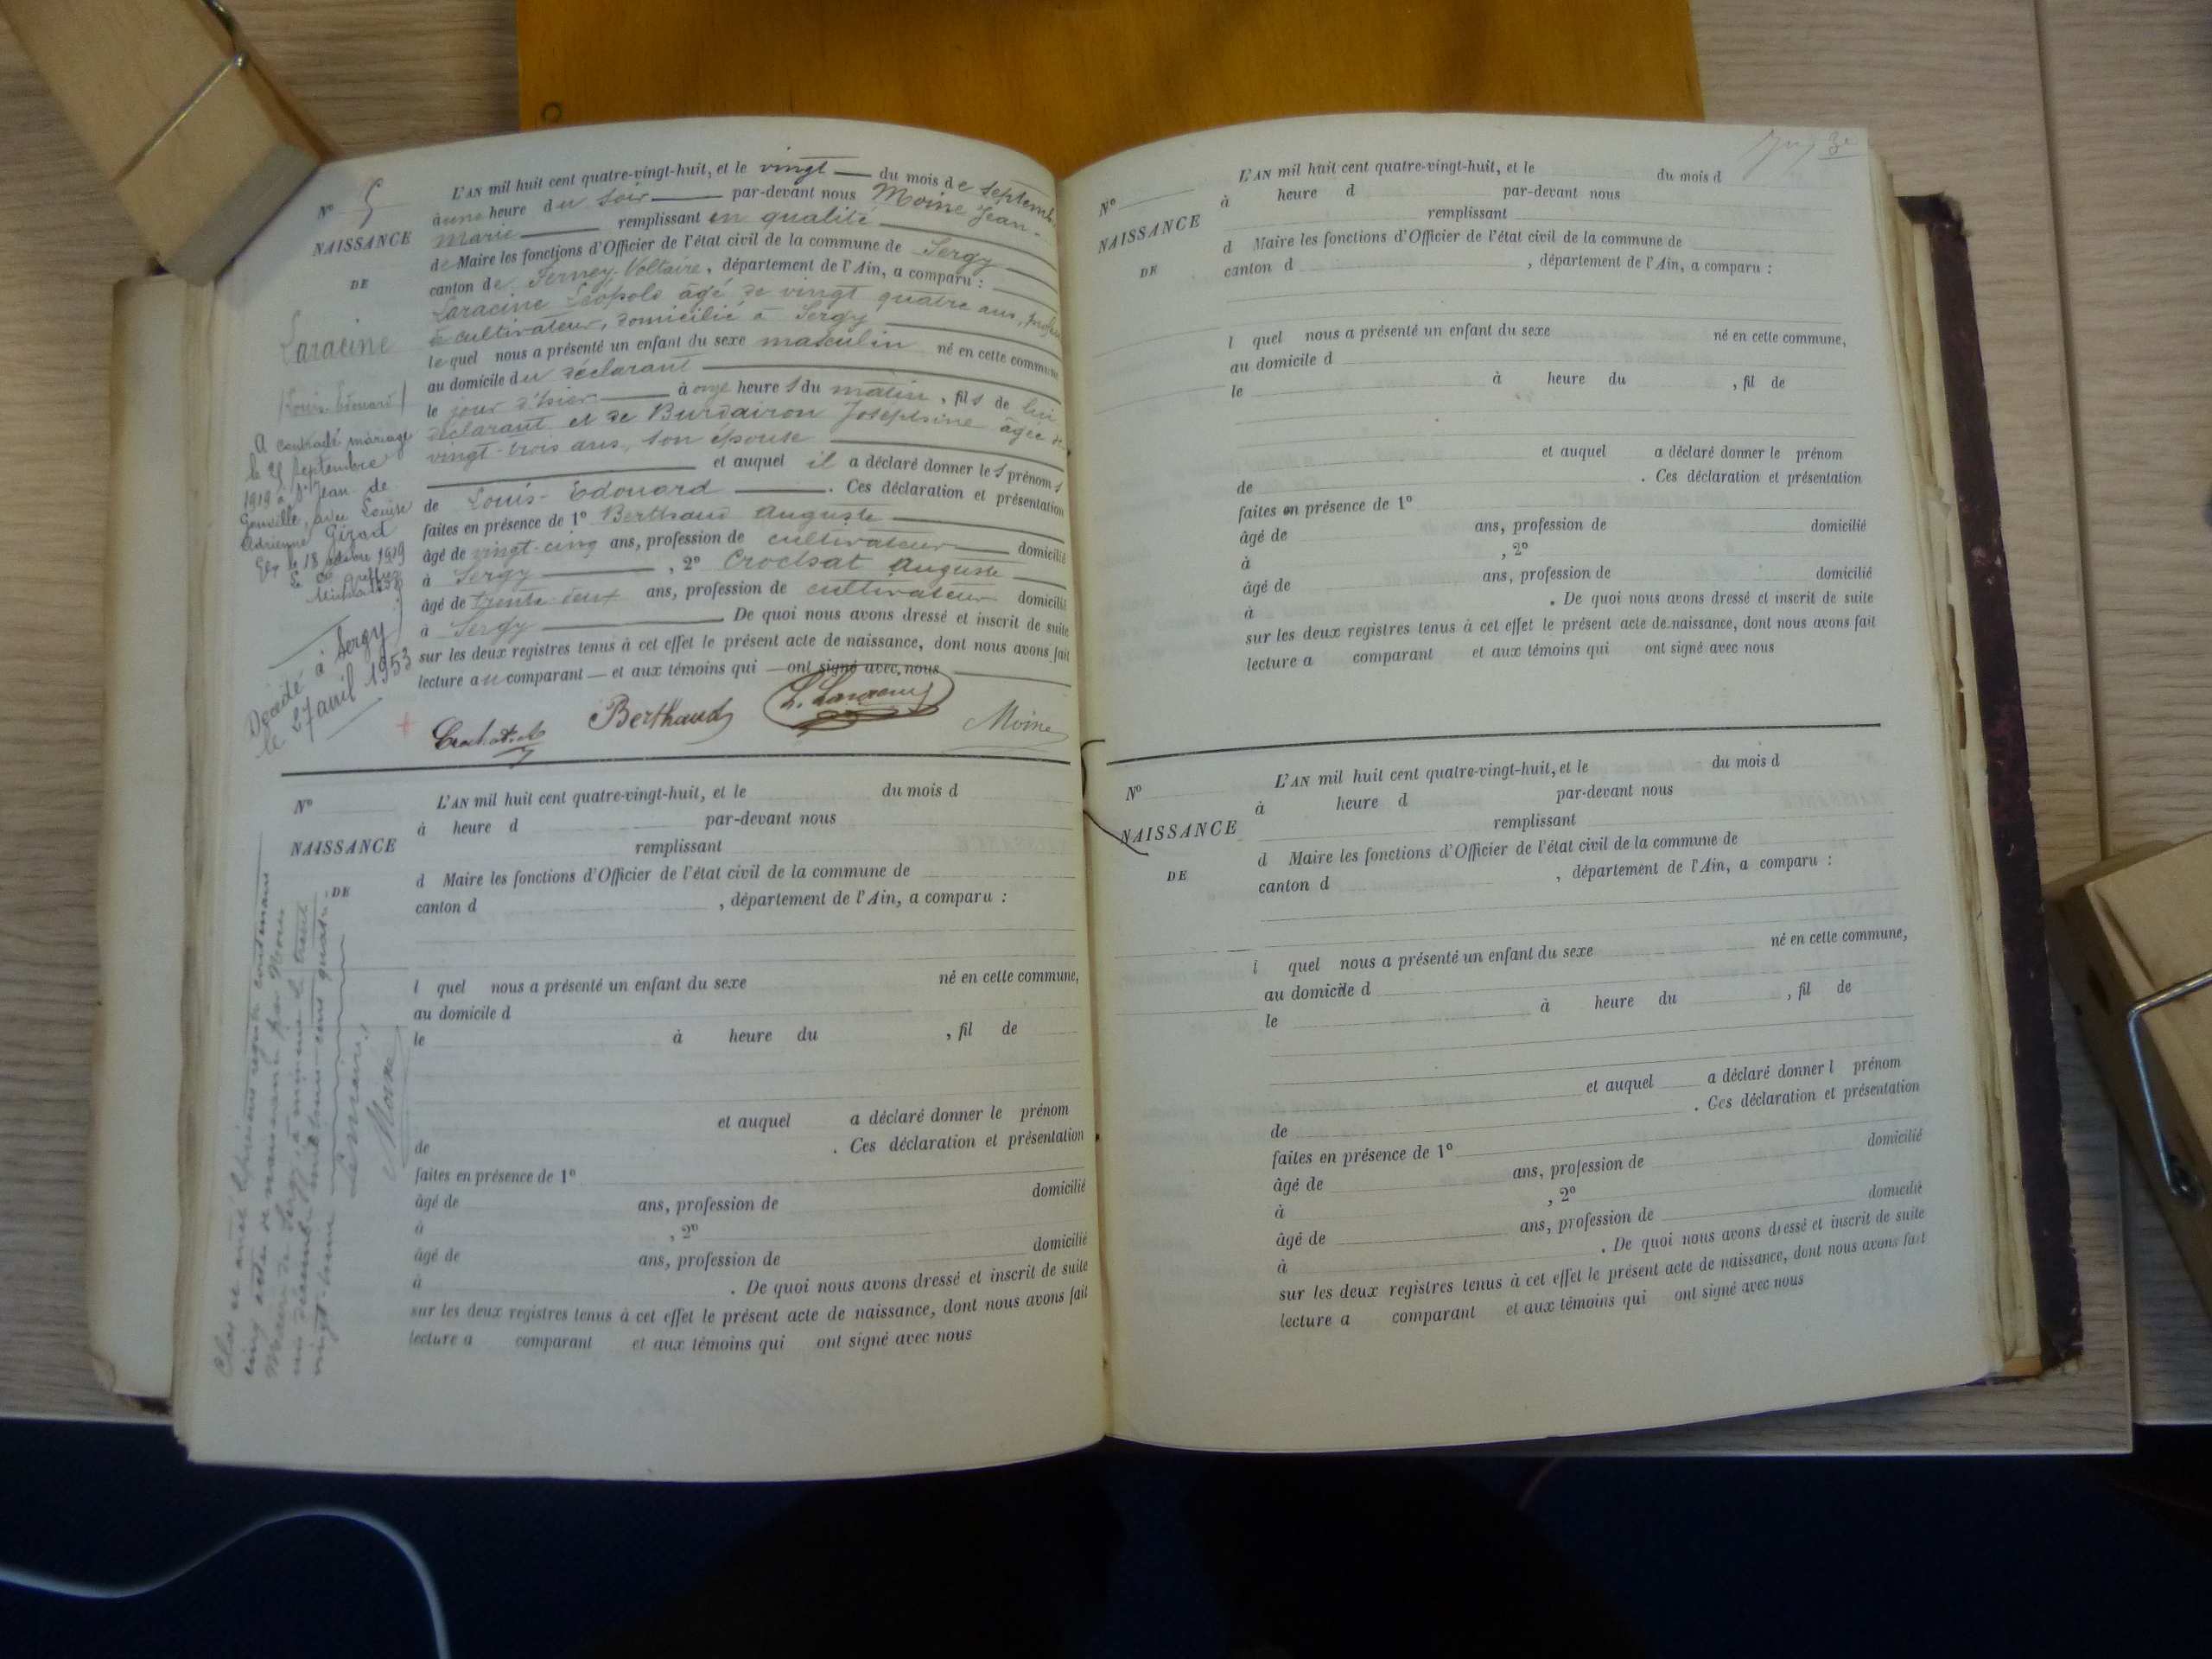 N° 5
NAISSANCE
DE
Laracine
(Louis-Edouard)
A contracté mariage
le 25 Septembre
1919 à St Jean de
Gonville, avec Louise
Adrienne Girod
18 octobre 1919
Décédé à Sergy
le 27 avril 1953
L'AN mil huit cent quatre-vingt-huit, et le vingt du mois de Septembre
à une heure du soir par-devant nous Moine Jean-
Marie remplissant en qualité
de Maire les fonctions d'Officier de l'état civil de la commune de Sergy
canton de Ferney-Voltaire, département de l'Ain, a comparu :
Laracine Léopold âgé de vingt quatre ans, profession
de cultivateur, domicilié à Sergy
lequel nous a présenté un enfant du sexe masculin né en cette commune
au domicile du déclarant
le jour d'hier à onze heures du matin, fils de lui
déclarant et de Burdairon Josephine âgée de
vingt-trois ans, son épouse
et auquel il a déclaré donner les prénoms
de Louis-Edouard. Ces déclaration et présentation
faites en présence de 1° Berthaud Auguste
âgé de vingt-cinq ans, profession de cultivateur domicilié
à Sergy, 2° Crochat Auguste
âgé de trente deux ans, profession de cultivateur domicilié
à Sergy. De quoi nous avons dressé et inscrit de suite
sur les deux registres tenus à cet effet le présent acte de naissance, dont nous avons fait
lecture au comparant et aux témoins qui ont signé avec nous
Berthaud L. Laracine Moine
N°
NAISSANCE
DE
L'AN mil huit cent quatre-vingt-huit, et le du mois d
à heure d par-devant nous
remplissant
d Maire les fonctions d'Officier de l'état civil de la commune de
canton d , département de l'Ain, a comparu :
l quel nous a présenté un enfant du sexe né en cette commune,
au domicile d
le à heure du , fil de
et auquel a déclaré donner le prénom
de . Ces déclaration et présentation
faites en présence de 1°
âgé de ans, profession de domicilié
à , 2°
âgé de ans, profession de domicilié
à . De quoi nous avons dressé et inscrit de suite
sur les deux registres tenus à cet effet le présent acte de naissance, dont nous avons fait
lecture a comparant et aux témoins qui ont signé avec nous
Clos et arrêté le présent registre contenant
cinq actes de naissance par Nous
Maire de Sergy, à minuit le trente
un décembre mil huit cent quatre-
vingt-huit
Le Maire
Moine
N°
NAISSANCE
DE
L'AN mil huit cent quatre-vingt-huit, et le du mois d
à heure d par-devant nous
remplissant
d Maire les fonctions d'Officier de l'état civil de la commune de
canton d , département de l'Ain, a comparu :
l quel nous a présenté un enfant du sexe né en cette commune,
au domicile d
le à heure du , fil de
et auquel a déclaré donner le prénom
de . Ces déclaration et présentation
faites en présence de 1°
âgé de ans, profession de domicilié
à , 2°
âgé de ans, profession de domicilié
à . De quoi nous avons dressé et inscrit de suite
sur les deux registres tenus à cet effet le présent acte de naissance, dont nous avons fait
lecture a comparant et aux témoins qui ont signé avec nous
N°
NAISSANCE
DE
L'AN mil huit cent quatre-vingt-huit, et le du mois d
à heure d par-devant nous
remplissant
d Maire les fonctions d'Officier de l'état civil de la commune de
canton d , département de l'Ain, a comparu :
l quel nous a présenté un enfant du sexe né en cette commune,
au domicile d
le à heure du , fil de
et auquel a déclaré donner l prénom
de . Ces déclaration et présentation
faites en présence de 1°
âgé de ans, profession de domicilié
à , 2°
âgé de ans, profession de domicilié
à . De quoi nous avons dressé et inscrit de suite
sur les deux registres tenus à cet effet le présent acte de naissance, dont nous avons fait
lecture a comparant et aux témoins qui ont signé avec nous